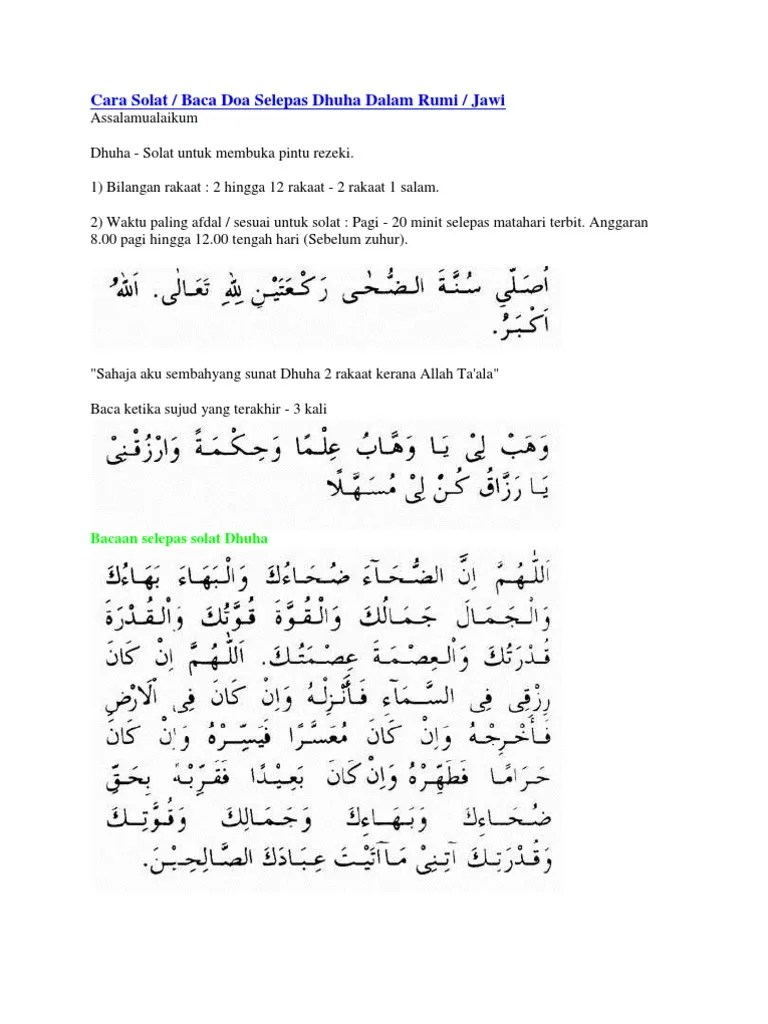 Cara Solat / Baca Doa Selepas Dhuha Dalam Rumi / Jawi
Assalamualaikum
Dhuha - Solat untuk membuka pintu rezeki.
1) Bilangan rakaat : 2 hingga 12 rakaat - 2 rakaat 1 salam.
2) Waktu paling afdal / sesuai untuk solat : Pagi - 20 minit selepas matahari terbit. Anggaran
8.00 pagi hingga 12.00 tengah hari (Sebelum zuhur).
اُصَلِّي سُنَّةَ الضُّحٰى رَكْعَتَيْنِ لِلّٰهِ تَعَالٰى. اَللهُ
اَكْبَرُ.
"Sahaja aku sembahyang sunat Dhuha 2 rakaat kerana Allah Ta'ala"
Baca ketika sujud yang terakhir - 3 kali
وَهَبْ لِيْ يَا وَهَّابُ عِلْمًا وَحِكْمَةً وَارْزُقْنِيْ
يَا رَزَّاقُ كُنْ لِيْ مُسَهَّلًا
Bacaan selepas solat Dhuha
اَللّٰهُمَّ اِنَّ الضُّحَآءَ ضُحَاءُكَ وَالْبَهَاءَ بَهَاءُكَ
وَالْجَمَالَ جَمَالُكَ وَالْقُوَّةَ قُوَّتُكَ وَالْقُدْرَةَ
قُدْرَتُكَ وَالْعِصْمَةَ عِصْمَتُكَ. اَللّٰهُمَّ اِنْ كَانَ
رِزْقِى فِى السَّمَآءِ فَأَنْزِلْهُ وَاِنْ كَانَ فِى اْلَارْضِ
فَأَخْرِجْهُ وَاِنْ كَانَ مُعَسَّرًا فَيَسِّرْهُ وَاِنْ كَانَ
حَرَامًا فَطَهِّرْهُ وَاِنْ كَانَ بَعِيْدًا فَقَرِّبْهُ بِحَقِّ
ضُحَاءِكَ وَبَهَاءِكَ وَجَمَالِكَ وَقُوَّتِكَ
وَقُدْرَتِكَ آتِنِيْ مَآاَتَيْتَ عِبَادَكَ الصَّالِحِيْنَ.